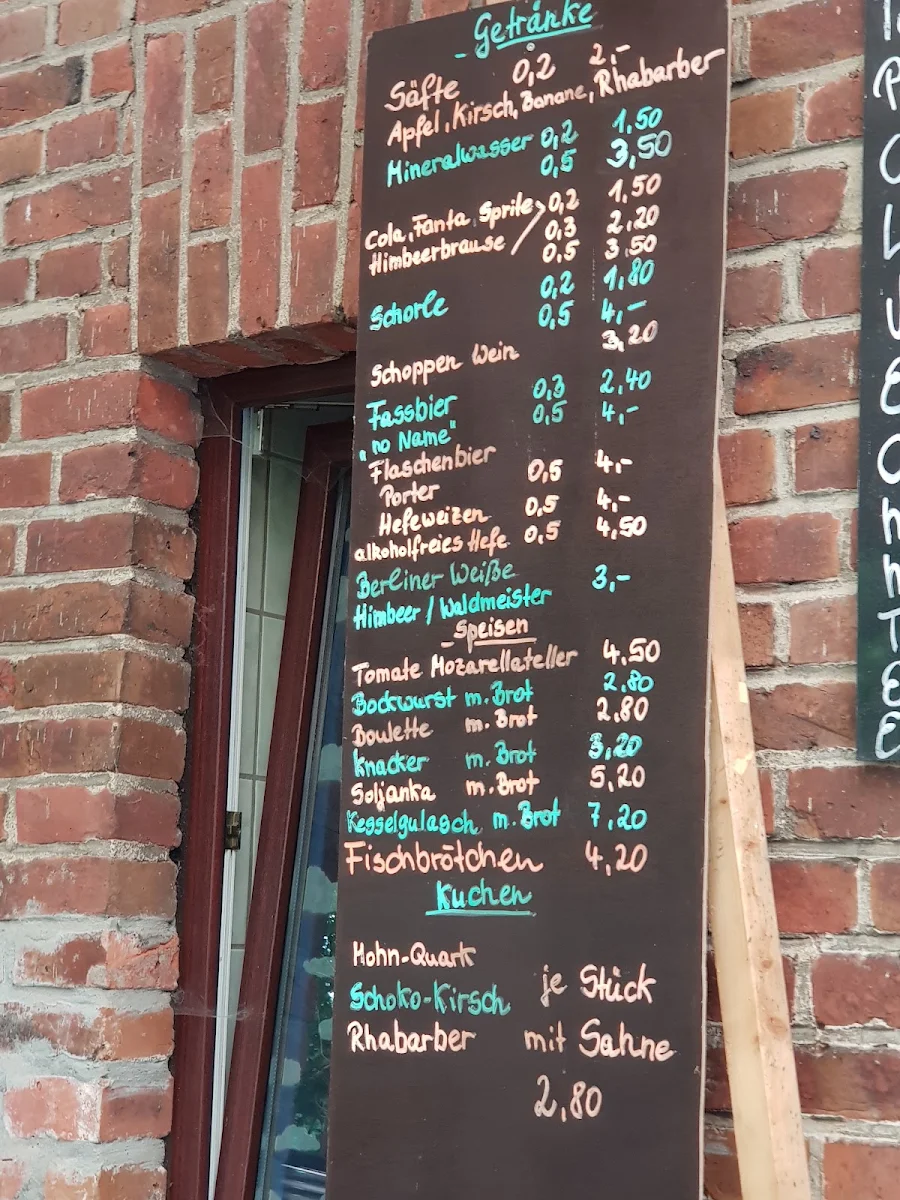 - Getränke
Säfte 0,2 2,-
Apfel, Kirsch, Banane, Rhabarber
Mineralwasser 0,2 1,50
0,5 3,50
Cola, Fanta, Sprite 0,2 1,50
Himbeerbrause 0,3 2,20
0,5 3,50
Schorle 0,2 1,80
0,5 4,-
Schoppen Wein 3,20
Fassbier 0,3 2,40
"no Name" 0,5 4,-
Flaschenbier
Porter 0,5 4,-
Hefeweizen 0,5 4,-
alkoholfreies Hefe 0,5 4,50
Berliner Weiße
Himbeer / Waldmeister 3,-
- Speisen
Tomate Mozarellateller 4,50
Bockwurst m. Brot 2,80
Boulette m. Brot 2,80
Knacker m. Brot 3,20
Soljanka m. Brot 5,20
Kesselgulasch m. Brot 7,20
Fischbrötchen 4,20
Kuchen
Mohn-Quark
Schoko-Kirsch je Stück
Rhabarber mit Sahne
2,80